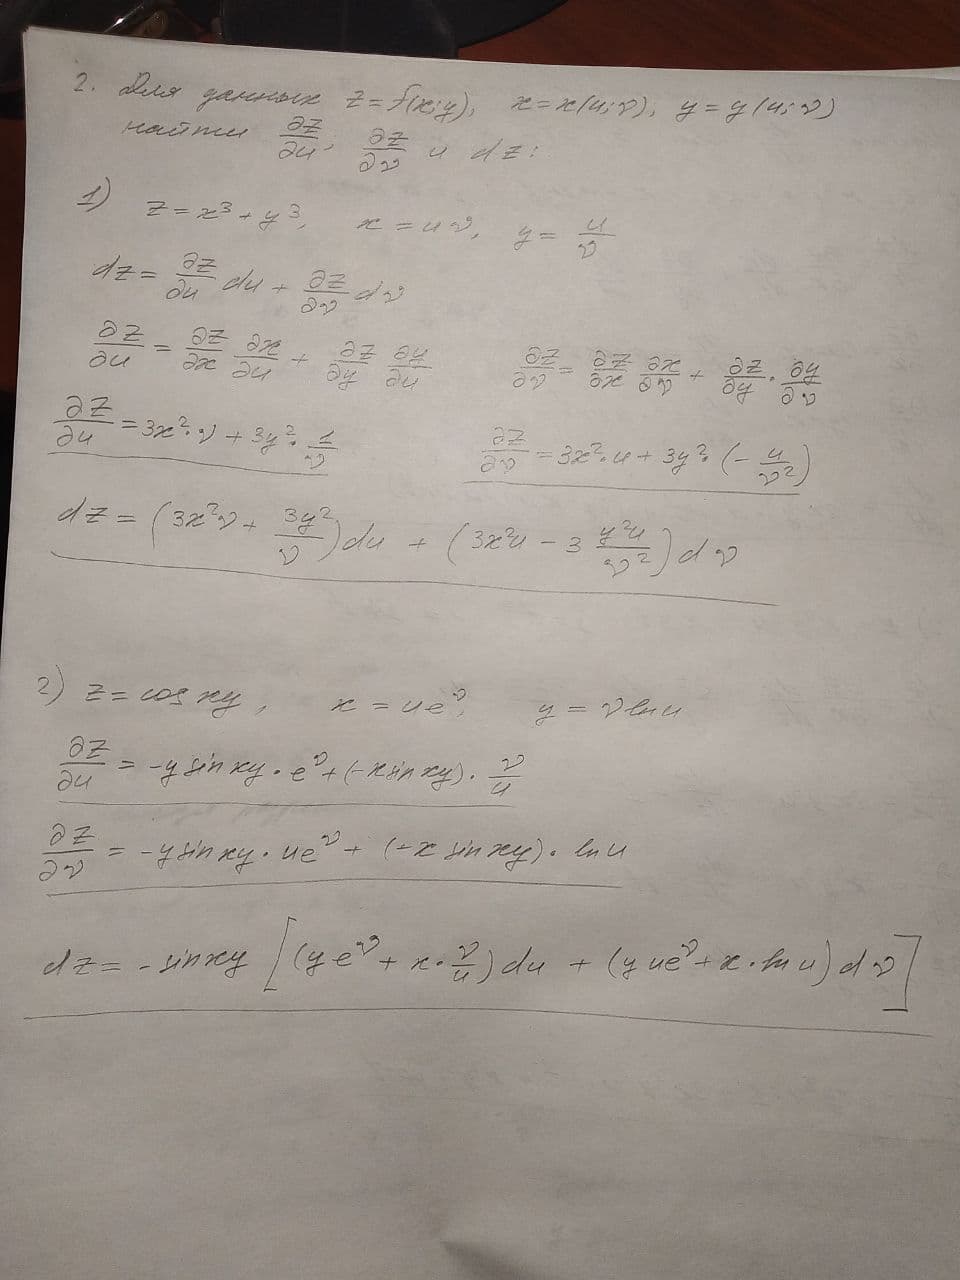 2. Для данных z = f(x; y), x = x(u; v), y = y(u; v)
найти ∂z/∂u, ∂z/∂v и dz:
1) z = x³ + y³, x = uv, y = u/v
dz = ∂z/∂u du + ∂z/∂v dv
∂z/∂u = ∂z/∂x ∂x/∂u + ∂z/∂y ∂y/∂u   ∂z/∂v = ∂z/∂x ∂x/∂v + ∂z/∂y · ∂y/∂v
∂z/∂u = 3x² · v + 3y² · 1/v   ∂z/∂v = 3x² · u + 3y² · (- u/v²)
dz = (3x²v + 3y²/v) du + (3x²u - 3 y²u/v²) dv
2) z = cos xy, x = ue^v, y = v ln u
∂z/∂u = -y sin xy · e^v + (-x sin xy) · v/u
∂z/∂v = -y sin xy · ue^v + (-x sin xy) · ln u
dz = - sin xy [(ye^v + x · v/u) du + (y ue^v + x · ln u) dv]